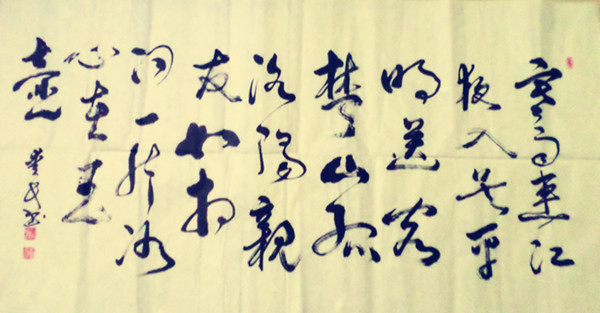 寒雨連江
夜入吴平
明送客
楚山孤
洛陽親
友如相
问一片冰
心在玉
壺
书